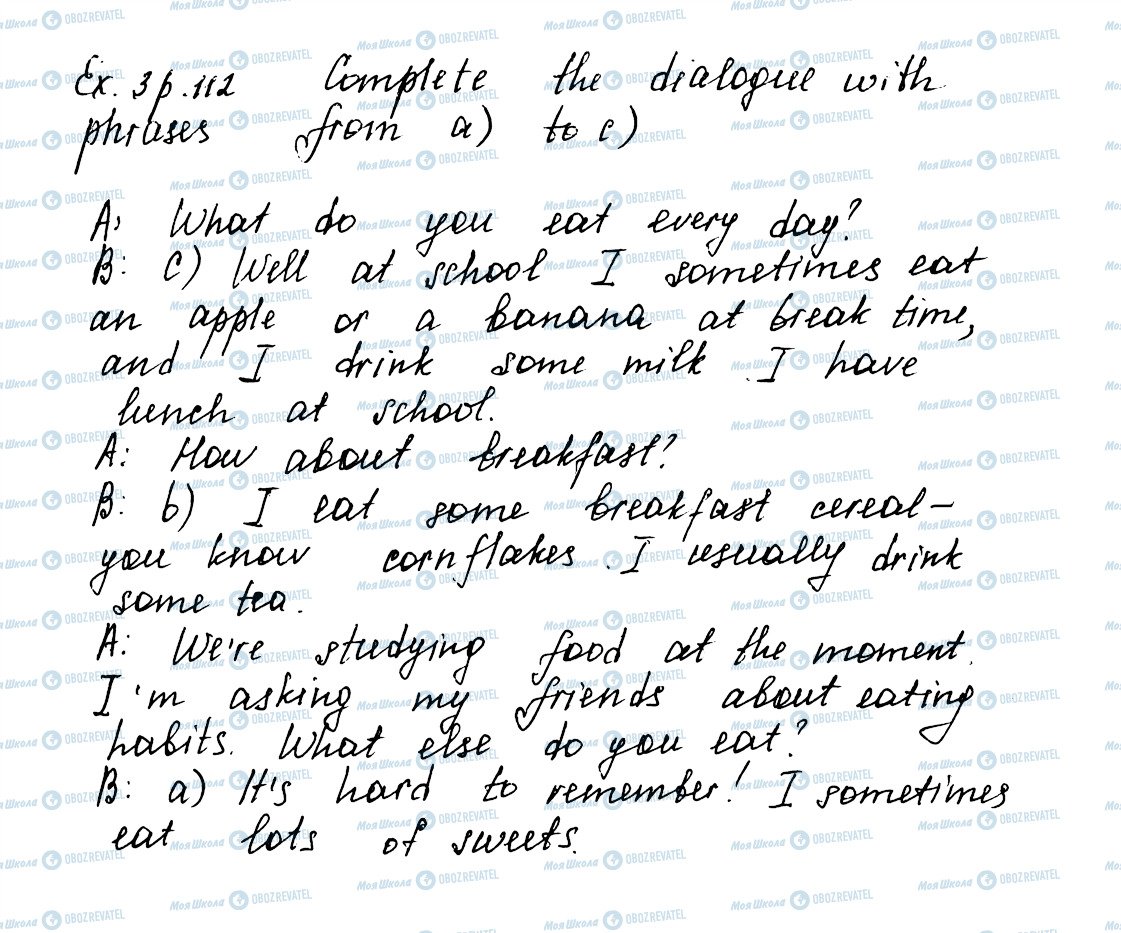 Ex. 3 p. 112 Complete the dialogue with
phrases from a) to c)
A: What do you eat every day?
B: c) Well at school I sometimes eat
an apple or a banana at break time,
and I drink some milk. I have
lunch at school.
A: How about breakfast?
B: b) I eat some breakfast cereal –
you know cornflakes. I usually drink
some tea.
A: We're studying food at the moment.
I'm asking my friends about eating
habits. What else do you eat?
B: a) It's hard to remember! I sometimes
eat lots of sweets.
Моя Школа OBOZREVATEL